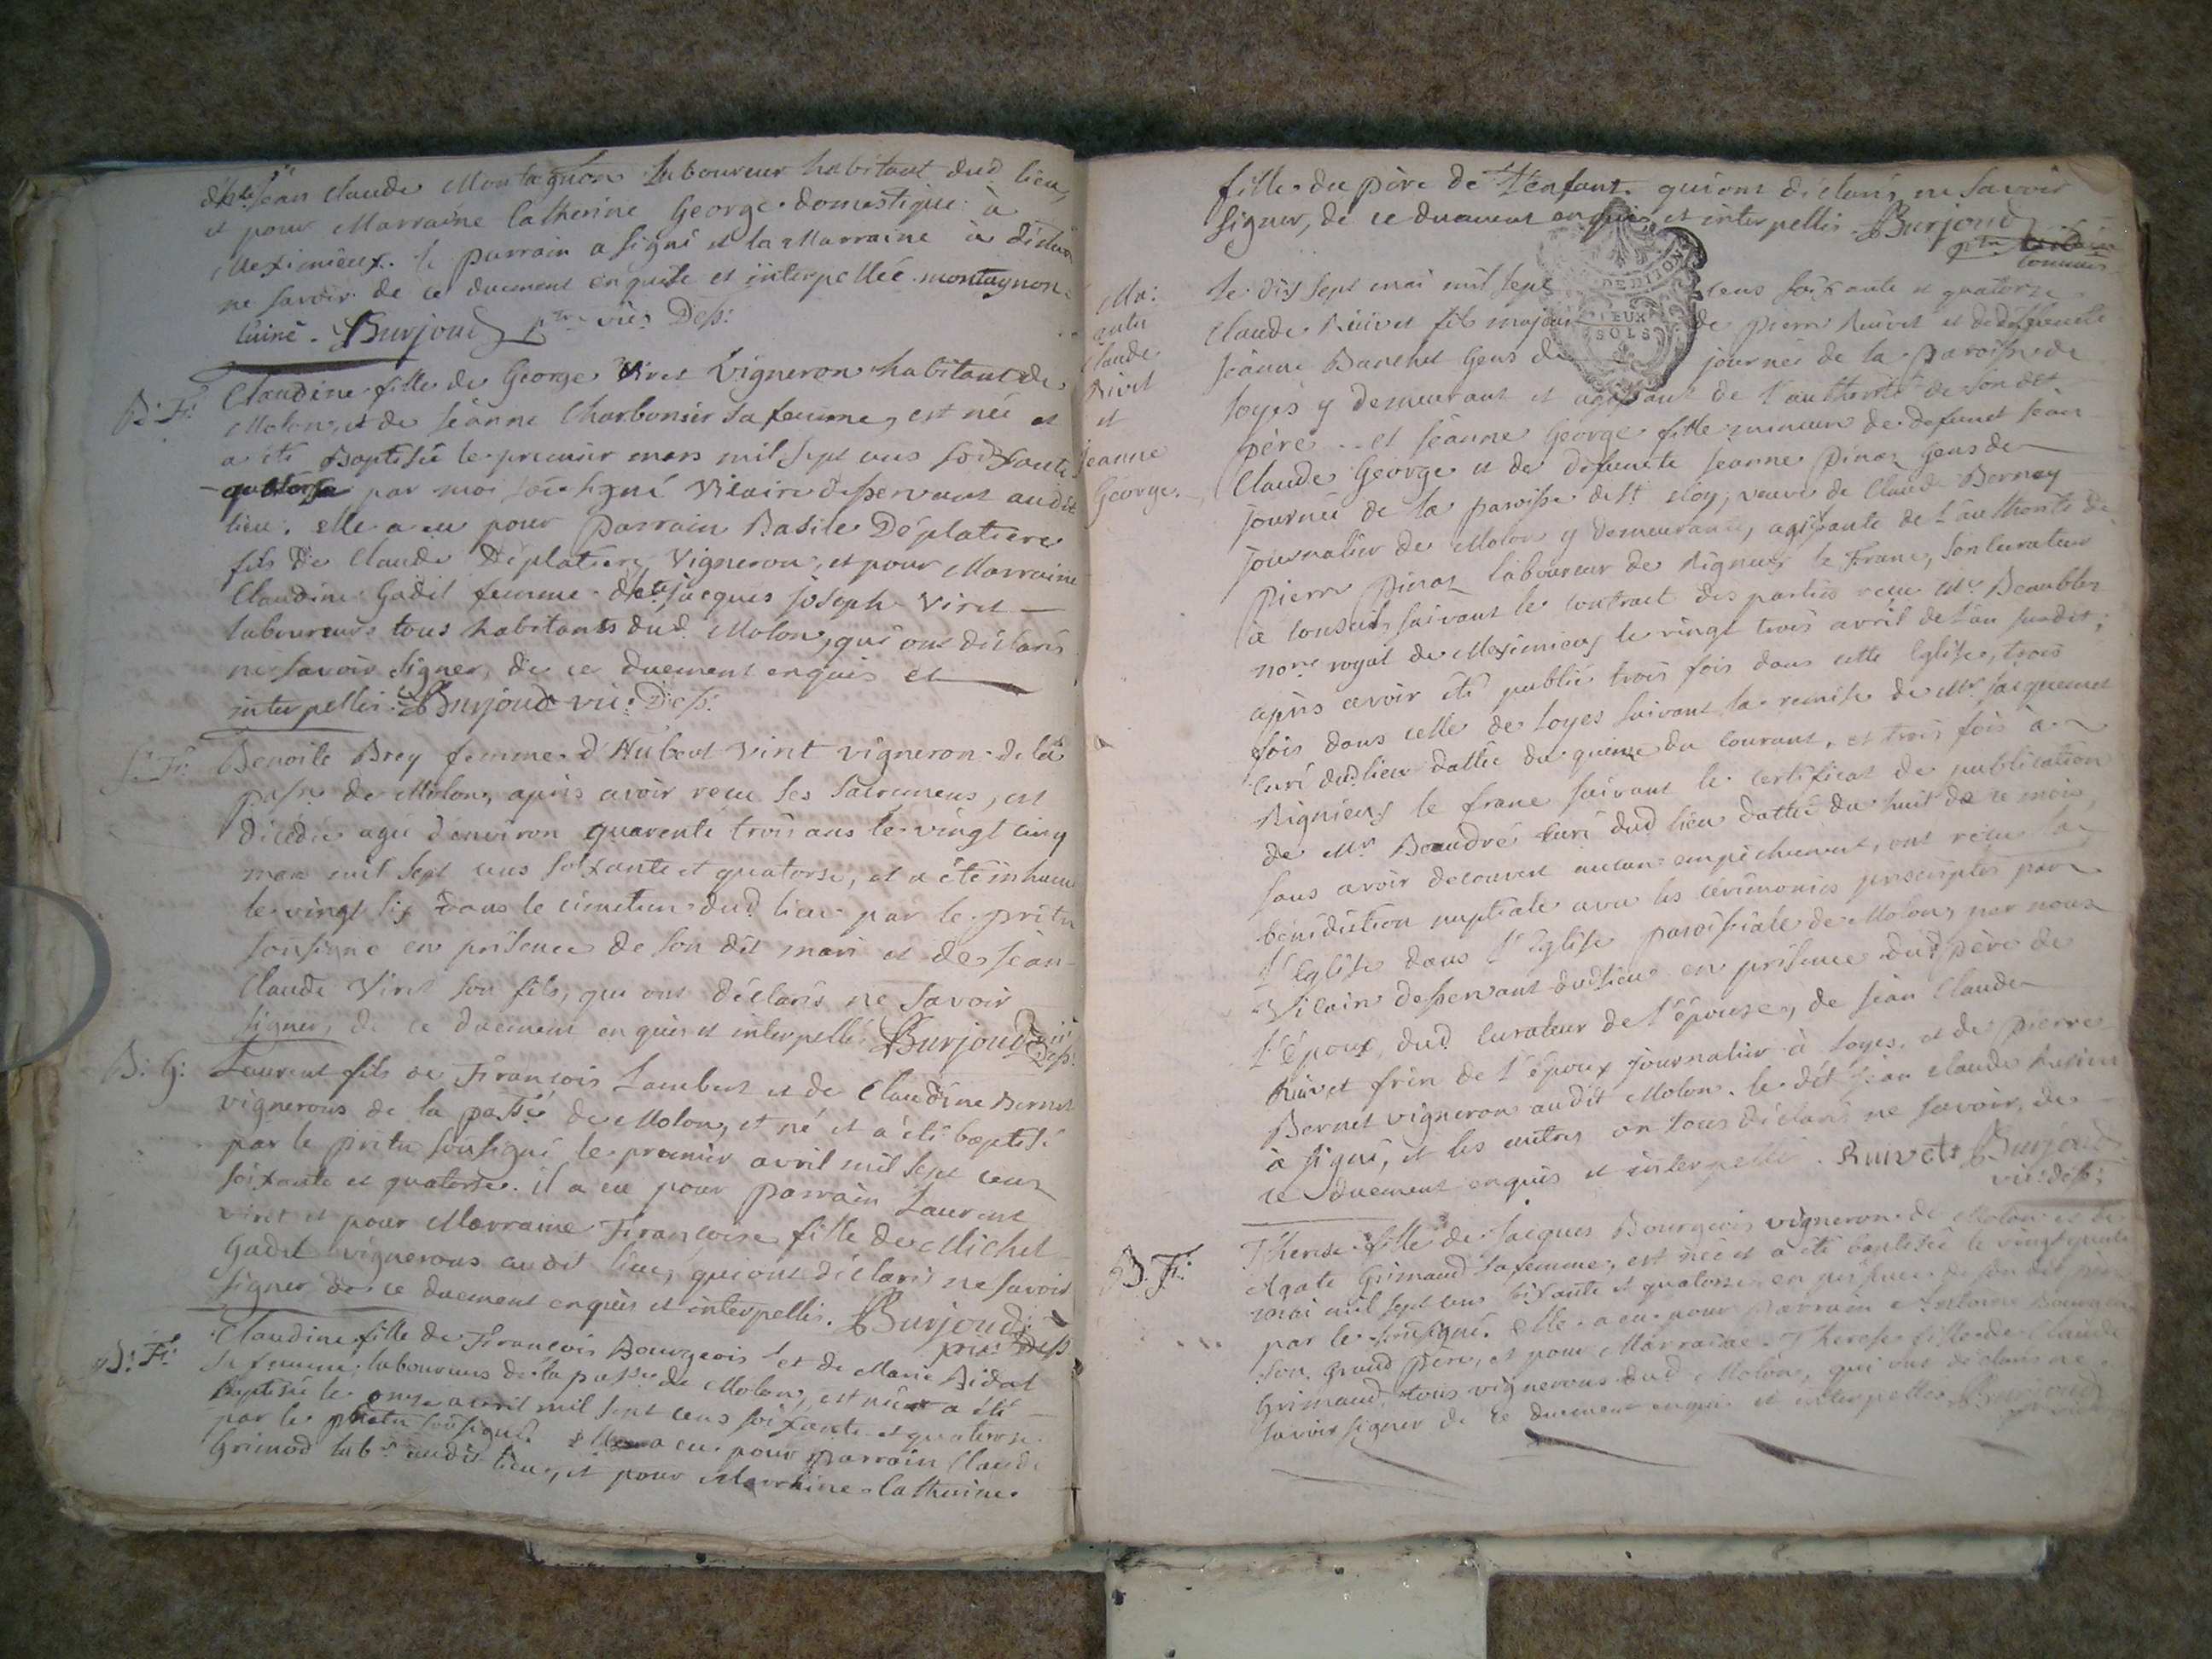 Jean Claude Montagnon Laboureur habitant dud lieu,
et pour Marraine Catherine George domestique à
Meximieux. le parrain a signé et la Marraine à déclaré
ne savoir de ce duement enquise et interpellée. montagnon.
Luiné. Burjoud ptre vic: Dess:
B: F: Claudine fille de George Viret Vigneron habitant de
Molon, et de jéanne Charbonier sa femme, est née et
a été Baptisée le premier mars mil sept cens soixante
quatorse par moi soussigné Vicaire desservant audit
lieu. elle a eu pour Parrain Basile Déplatiere
fils de Claude Déplatiere Vigneron, et pour Marraine
Claudine Gadit femme jacques joseph Viret
laboureurs tous habitants dud. Molon, qui ont déclarés
ne savoir signer, de ce duement enquis et
interpellés. Burjoud vic: Dess:
S: F: Benoite Brey femme d'Hubert Viret vigneron de la
passe de Molon, après avoir recu ses sacremens, est
décédée agée d'environ quarente trois ans le vingt cinq
mars mil sept cens soixante et quatorse, et a été inhumé
le vingt six dans le cimetiere dud lieu par le prêtre
sousigné en présence de son dit mari et de jean
Claude Viret son fils, qui ont déclarés ne savoir
signer, de ce duement enquis et interpellés Burjoud vic: dess:
B: G: Laurent fils de François Lambert et de Claudine Bernet
vignerons de la passe de Molon, et né et à été baptisé
par le prêtre sousigné le premier avril mil sept cens
soixante et quatorse. il a eu pour parrain Laurent
Viret et pour Marraine Françoise fille de Michel
Gadit vignerons audit lieu, qui ont déclarés ne savoir
signer de ce duement enquis et interpellés. Burjoud
ptre Dess
B: F: Claudine fille de François Bourgeois et de Marie Bidal
sa femme laboureurs de la passe de Molon, est née et a été
baptisée le onze avril mil sept cens soixante et quatorse
par le prêtre sousigné. elle a eu pour parrain Claude
Grimod lab audit lieu, et pour Marraine Catherine
fille du père de l'enfant. qui ont déclarés ne savoir
signer, de ce duement enquis et interpellés. Burjoud
ptre vicaire
commis
GEN DEDITION
DEUX
SOLS
Ma:
entre
Claude
Rivet
et
jeanne
George.
Le dix sept mai mil sept cens soixante et quatorze
Claude Ruivet fils majeur de pierre Ruivet et de deffuncte
jéanne Banchet Gens de journée de la paroisse de
Loyes y demeurant et agissant de l'authorité de son dit
père. et jéanne George fille mineure de defunct jean
Claude George et de defuncte jeanne Pinaz Gens de
journée de la paroisse de St eloy, veuve de Claude Bernay
journalier de Molon y demeurante, agissante de l'authorité de
Pierre Pinaz laboureur de Rigneux le Franc, son curateur
à conseil, suivant le contract des parties recu Me Beaublez
nore royal de Meximieux le vingt trois avril de l'an susdit,
après avoir été publié trois fois dans cette Eglise, trois
fois dans celle de Loyes suivant la remise de Mr jacquemet
curé dud lieu dattée du quinze du courant, et trois fois à
Rignieux le franc suivant le certificat de publication
de Mr Beaudré curé dud lieu datté du huit de ce mois,
sans avoir decouvert aucun empêchement, ont recu la
bénédiction nuptiale avec les cérémonies prescriptes par
l'Eglise dans l'Eglise paroissiale de Molon, par nous
Vicaire desservant dud lieu en présence dud père de
l'époux, dud. curateur de l'épouse, de jéan Claude
Ruivet frère de l'époux journalier à Loyes, et de pierre
Bernet vigneron audit Molon. le dit jéan Claude Ruivet
à signé, et les autres on tous déclarés ne savoir, de
ce duement enquis et interpellés. Ruivet Burjoud
vic: dess:
B: F: Therese fille de jacques Bourgeois vigneron de Molon et de
Agate Grimaud sa femme, est née et a été baptisée le vingt quatre
mai mil sept cens soixante et quatorse, en présence de son dit père
par le sousigné. elle a eu pour parrain Antoine Bourgeois
son grand père, et pour Marraine Therese fille de Claude
Grimaud, tous vignerons dud Molon, qui ont déclarés ne
savoir signer de ce duement enquis et interpellés Burjoud